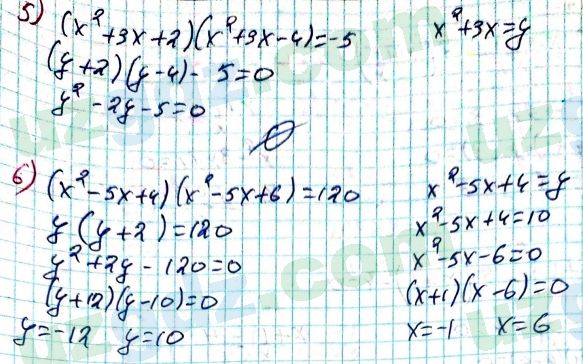 5) (x²+3x+2)(x²+3x-4)=-5 x²+3x=y
(y+2)(y-4)- 5=0
y²-2y-5=0
∅
6) (x²-5x+4)(x²-5x+6)=120 x²-5x+4=y
y(y+2)=120 x²-5x+4=10
y²+2y-120=0 x²-5x-6=0
(y+12)(y-10)=0 (x+1)(x-6)=0
y=-12 y=10 x=-1 x=6